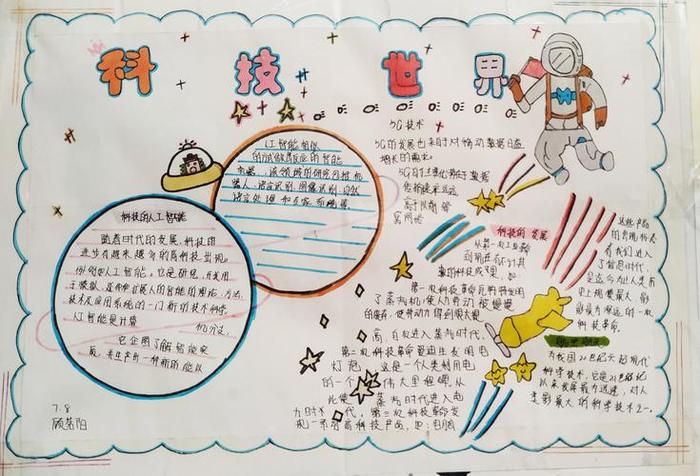 科技世界
人工智能相似
的方式做出反应的智能
机器，该领域的研究包括机
器人，语言识别，图像识别，自然
语言处理和专家系统等
科技的人工智能
随着时代的发展，科技的
进步有越来越多的高科技出现。
例如人工智能。它是研究、开发用
于模拟、延伸和扩展人的智能的理论、方法、
技术及应用系统的一门新的技术科学。
人工智能是计算机
它企图了解智能实
质，并生产出一种新的能以
7.8
5G技术
5G的发展也来自于对移动数据日益
增长的需求
5G的主要优势在于数据
传输速率远远
高于以前
科技的发展
从第一次工业革命
到现在
第一次科技革命
了蒸汽机，使人力劳动被慢慢
的
，使劳动力得到很大
，自人进入蒸汽时代，
第二次科技革命爱迪生发明电
灯泡，这是一个人类利用电
的一个伟大里程碑，从
此使蒸汽时代进入电
力时代，第三次科技革命发
现一系列高科技产品，如：电脑
这些产品
的出现标志
着我们进入
了信息时代，
是迄今为止人类历
史上规模最大、影
响最为深远的一次
科技革命。
为我国21世纪
科学技术，它是21世纪
以来发展最为迅速，对人
类影响最大的科学技术之一。